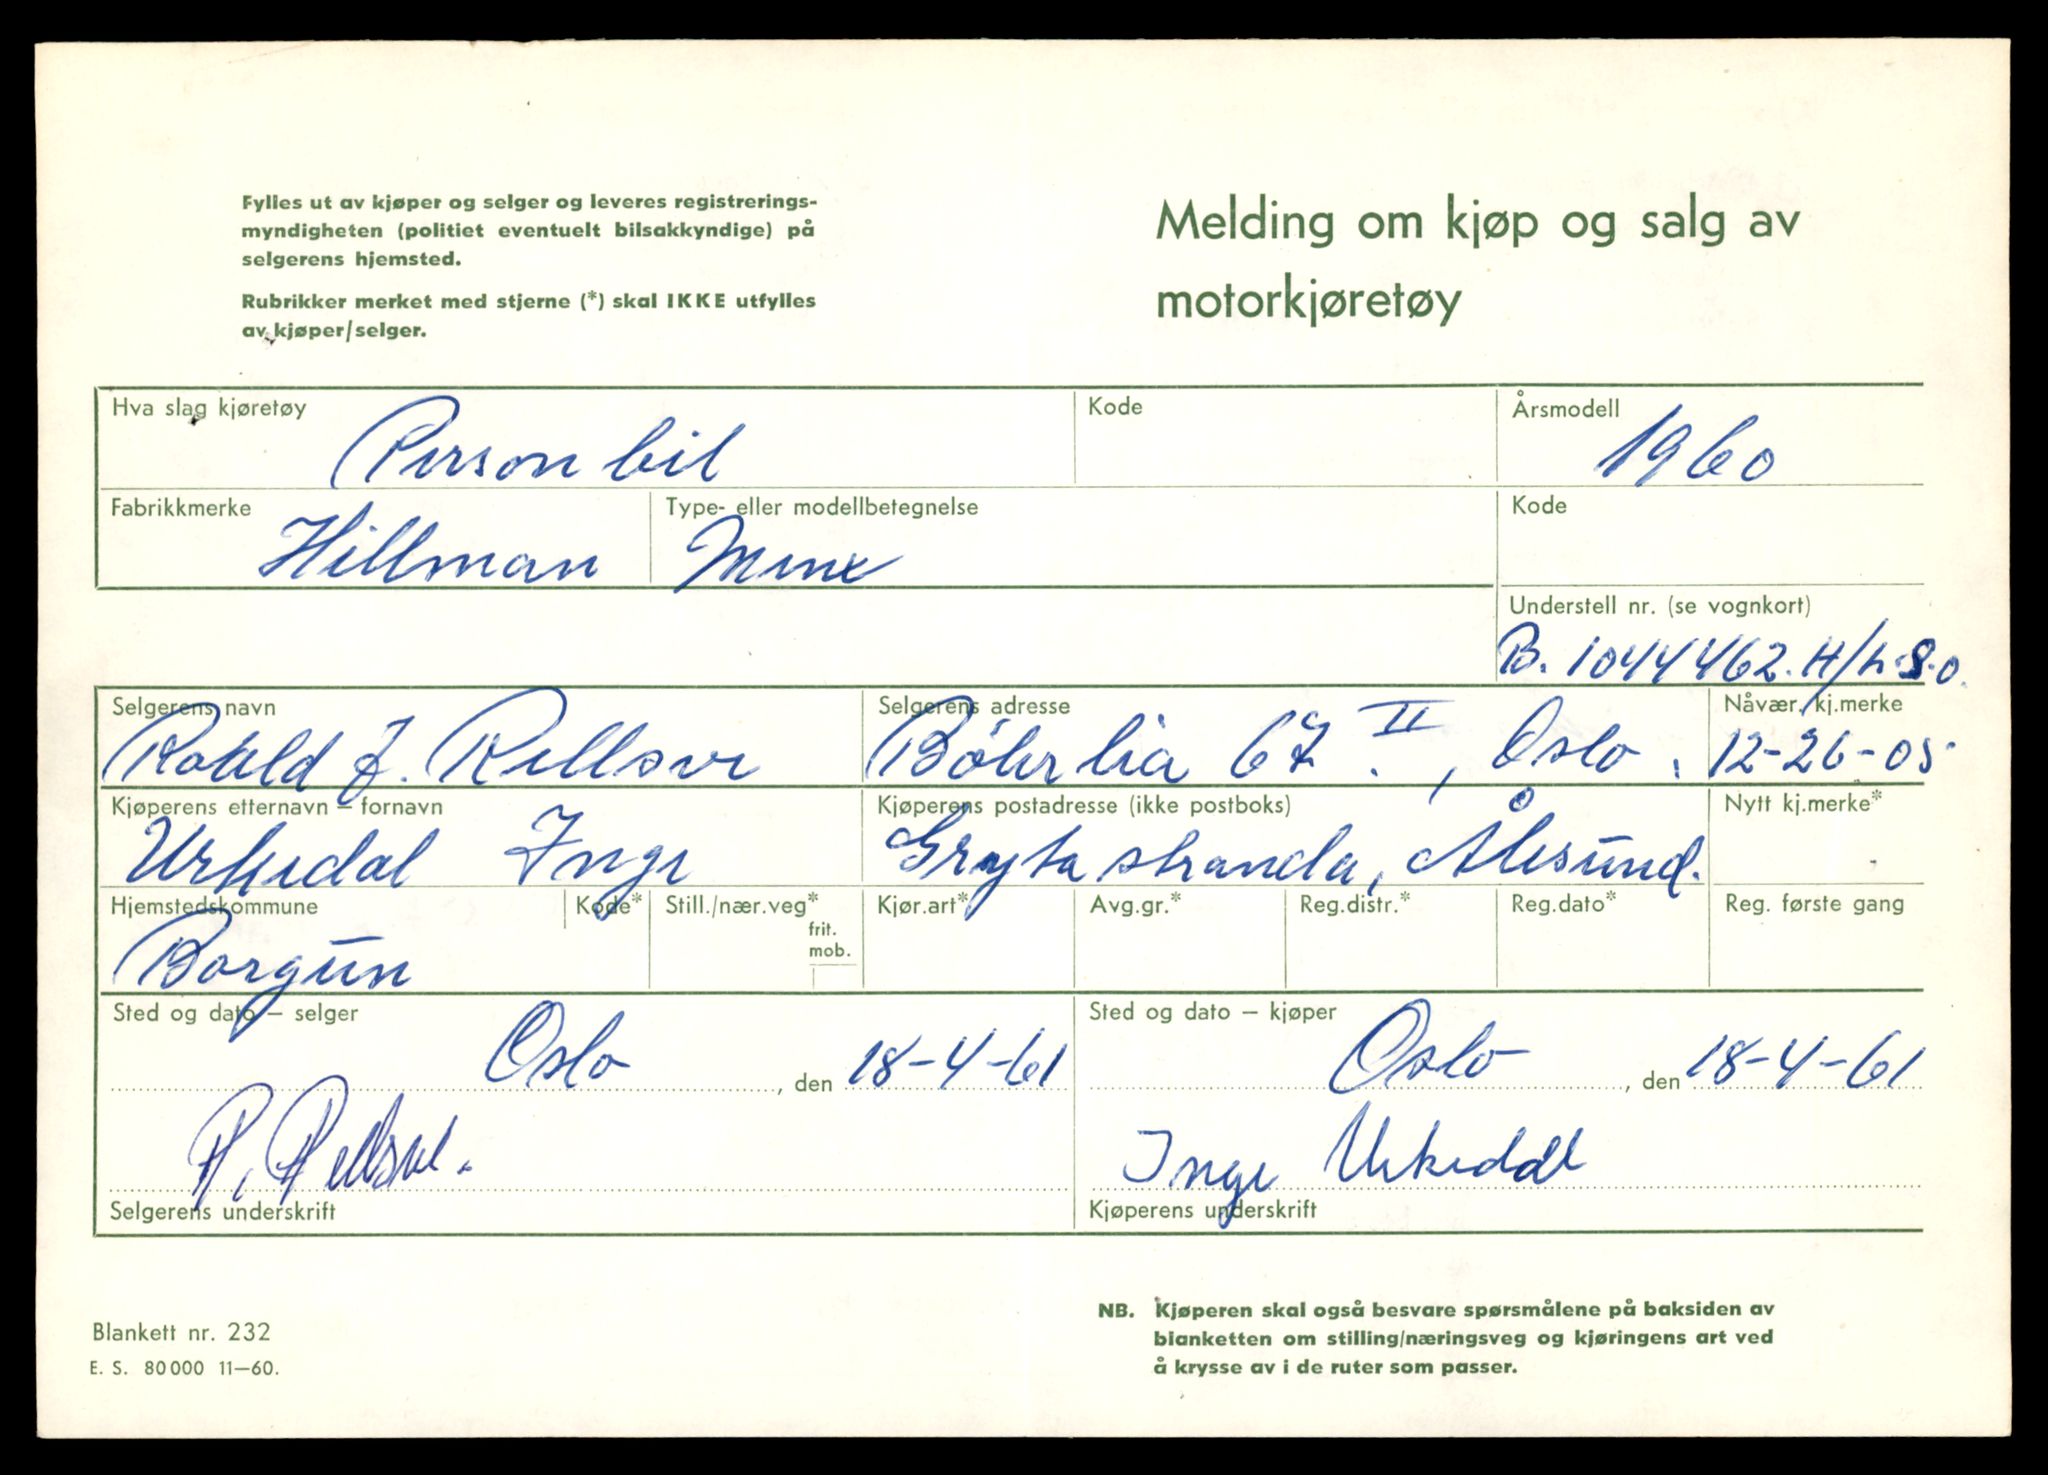 Fylles ut av kjøper og selger og leveres registrerings-
myndigheten (politiet eventuelt bilsakkyndige) på
selgerens hjemsted.
Rubrikker merket med stjerne (*) skal IKKE utfylles
av kjøper/selger.
Melding om kjøp og salg av
motorkjøretøy
Hva slag kjøretøy
Personbil
Kode
Årsmodell
1960
Fabrikkmerke
Hillman
Type- eller modellbetegnelse
Minx
Kode
Understell nr. (se vognkort)
B. 1044462. H/L.S.O.
Selgerens navn
Roald J. Rellsve
Selgerens adresse
Bøhrlia 67 II, Oslo.
Nåvær. kj.merke
12-26-05
Kjøperens etternavn – fornavn
Urkedal Inge
Kjøperens postadresse (ikke postboks)
Grytastranda, Ålesund.
Nytt kj.merke*
Hjemstedskommune
Borgun
Kode*
Still./nær.veg*
frit.
mob.
Kjør.art*
Avg.gr.*
Reg.distr.*
Reg.dato*
Reg. første gang
Sted og dato – selger
Oslo, den 18-4-61
Sted og dato – kjøper
Oslo, den 18-4-61
R. Rellsve.
Selgerens underskrift
Inge Urkedal
Kjøperens underskrift
Blankett nr. 232
E. S. 80 000 11–60.
NB. Kjøperen skal også besvare spørsmålene på baksiden av
blanketten om stilling/næringsveg og kjøringens art ved
å krysse av i de ruter som passer.